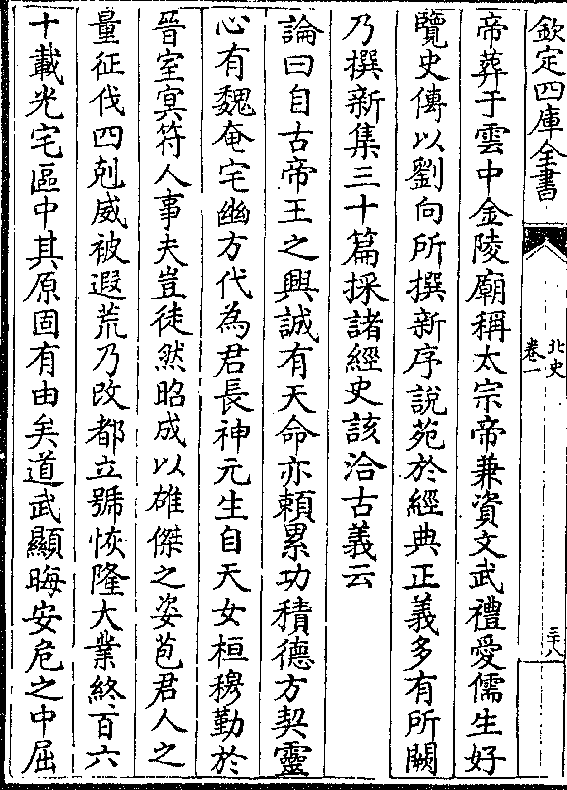 欽定四庫全書
北史
卷一
三十八
帝葬于雲中金陵廟稱太宗帝兼資文武禮愛儒生好
覽史傳以劉向所撰新序說苑於經典正義多有所闕
乃撰新集三十篇採諸經史該洽古義云
論曰自古帝王之興誠有天命亦賴累功積德方契靈
心有魏奄宅幽方代為君長神元生自天女桓穆勤於
晉室冥符人事夫豈徒然昭成以雄傑之姿苞君人之
量征伐四剋威被遐荒乃改都立號恢隆大業終百六
十載光宅區中其原固有由矣道武顯晦安危之中屈